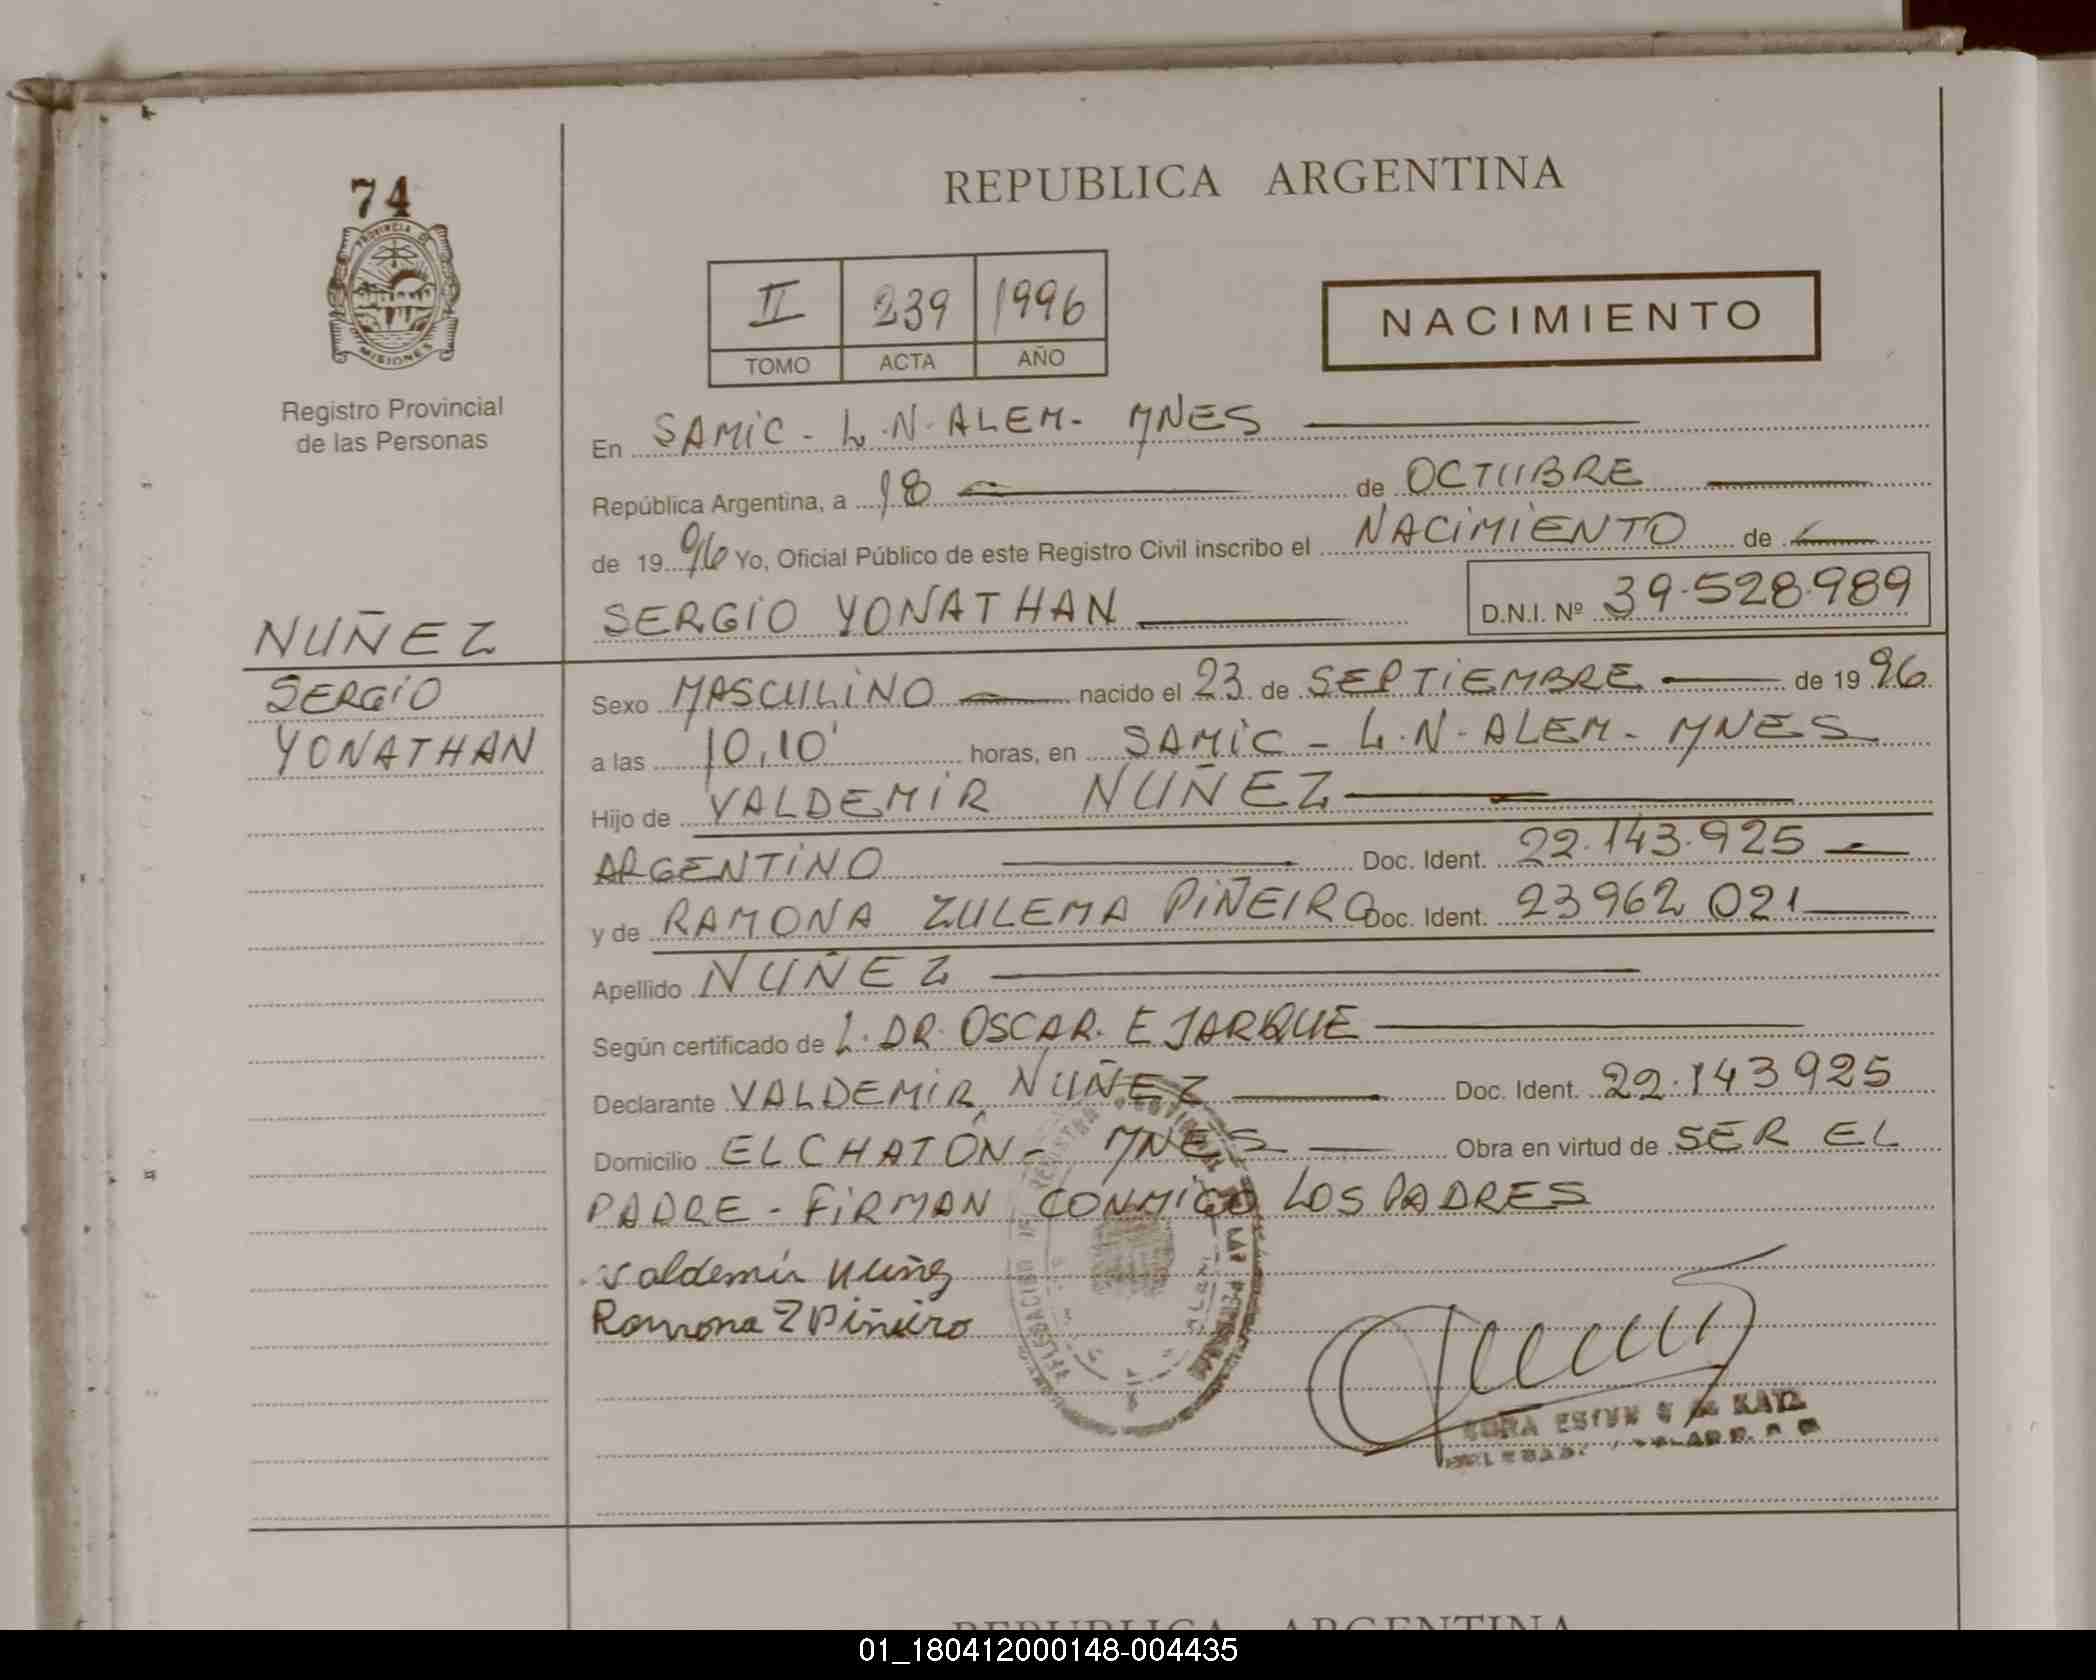 74
PROVINCIA DE
MISIONES
Registro Provincial
de las Personas
REPUBLICA ARGENTINA
II 239 1996
TOMO ACTA AÑO
NACIMIENTO
En SAMIC - L.N. ALEM - MNES
República Argentina, a 18 de OCTUBRE
de 1996 Yo, Oficial Público de este Registro Civil inscribo el NACIMIENTO de
SERGIO YONATHAN D.N.I. Nº 39.528.989
NUÑEZ
SERGIO
YONATHAN
Sexo MASCULINO nacido el 23 de SEPTIEMBRE de 1996
a las 10,10' horas, en SAMIC - L.N. ALEM - MNES
Hijo de VALDEMIR NUÑEZ
ARGENTINO Doc. Ident. 22.143.925
y de RAMONA ZULEMA PIÑEIRO Doc. Ident. 23962 021
Apellido NUÑEZ
Según certificado de L. DR. OSCAR. EJARQUE
Declarante VALDEMIR NUÑEZ Doc. Ident. 22.143925
Domicilio EL CHATÓN - MNES Obra en virtud de SER EL
PADRE - FIRMAN CONMIGO LOS PADRES
Valdemir Nuñez
Ramona Z Piñeiro
REPUBLICA ARGENTINA
01_180412000148-004435